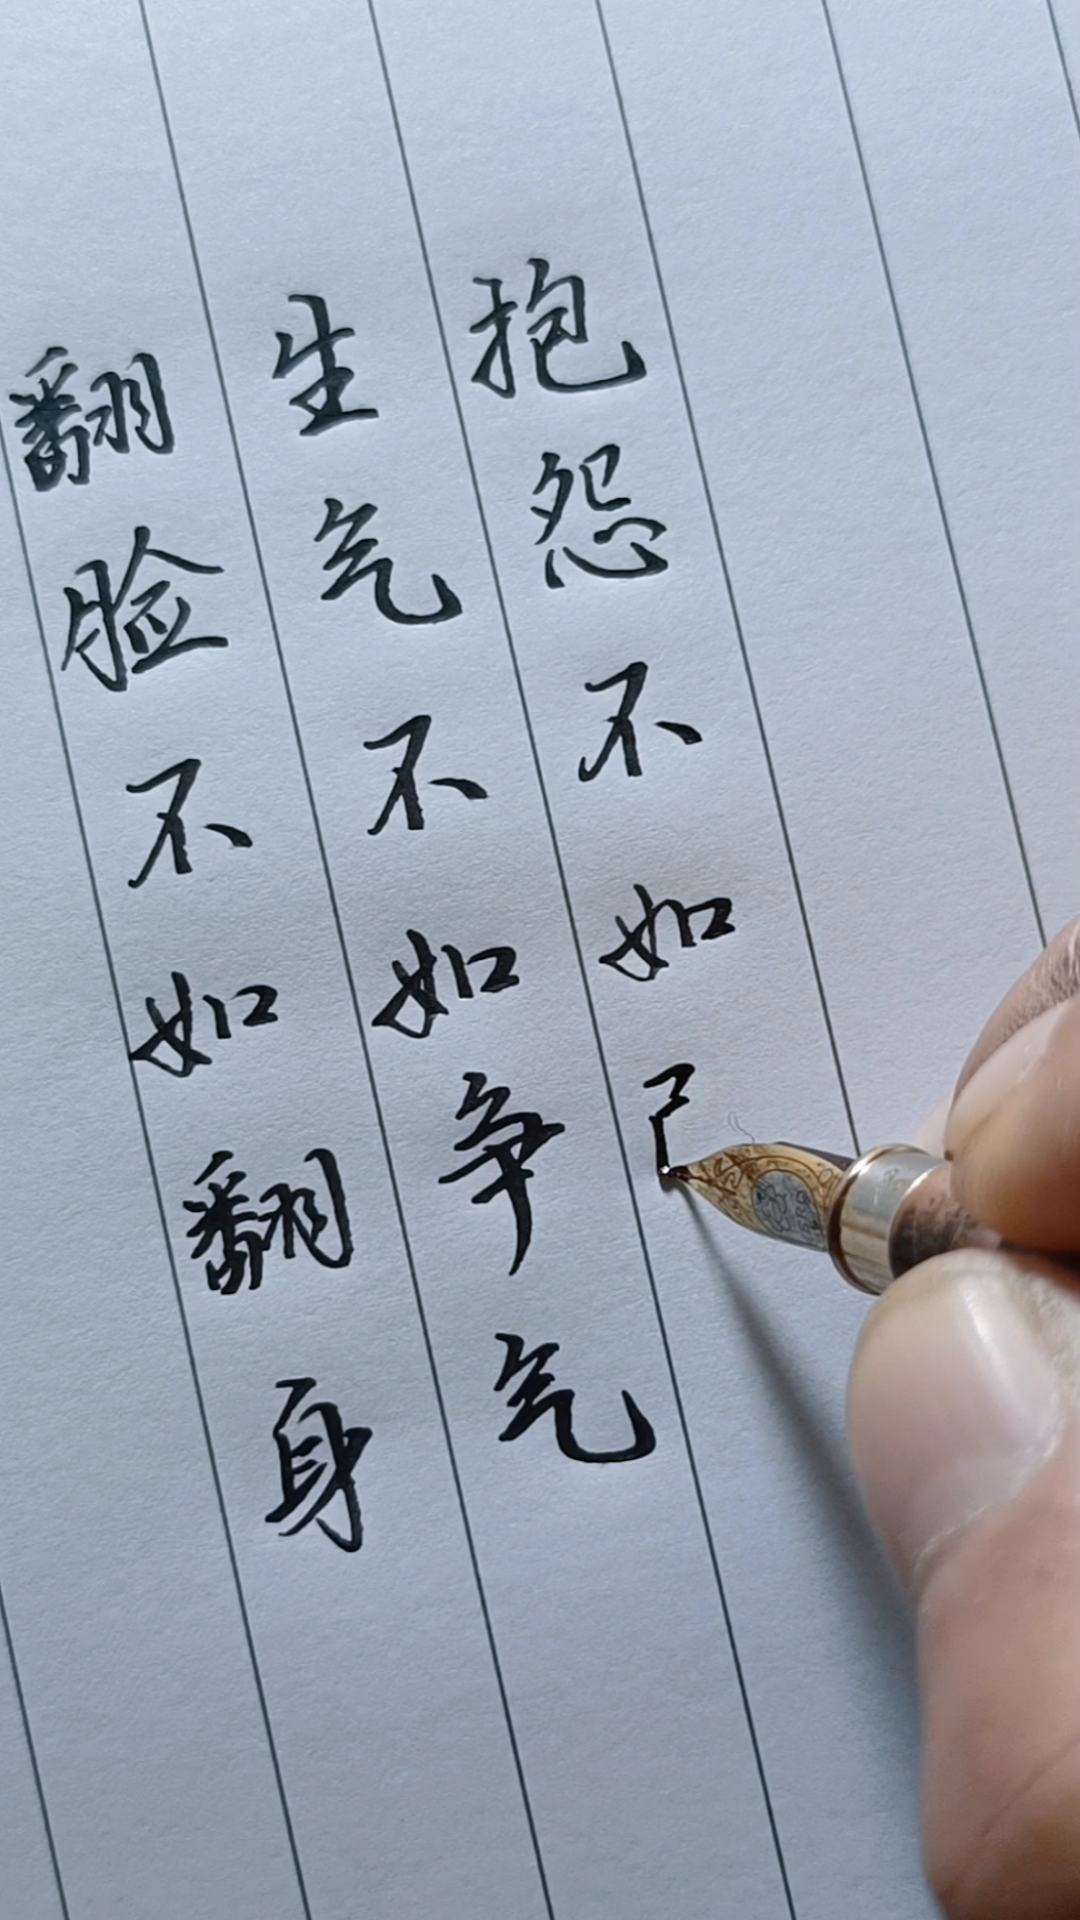 翻脸不如翻身
生气不如争气
抱怨不如